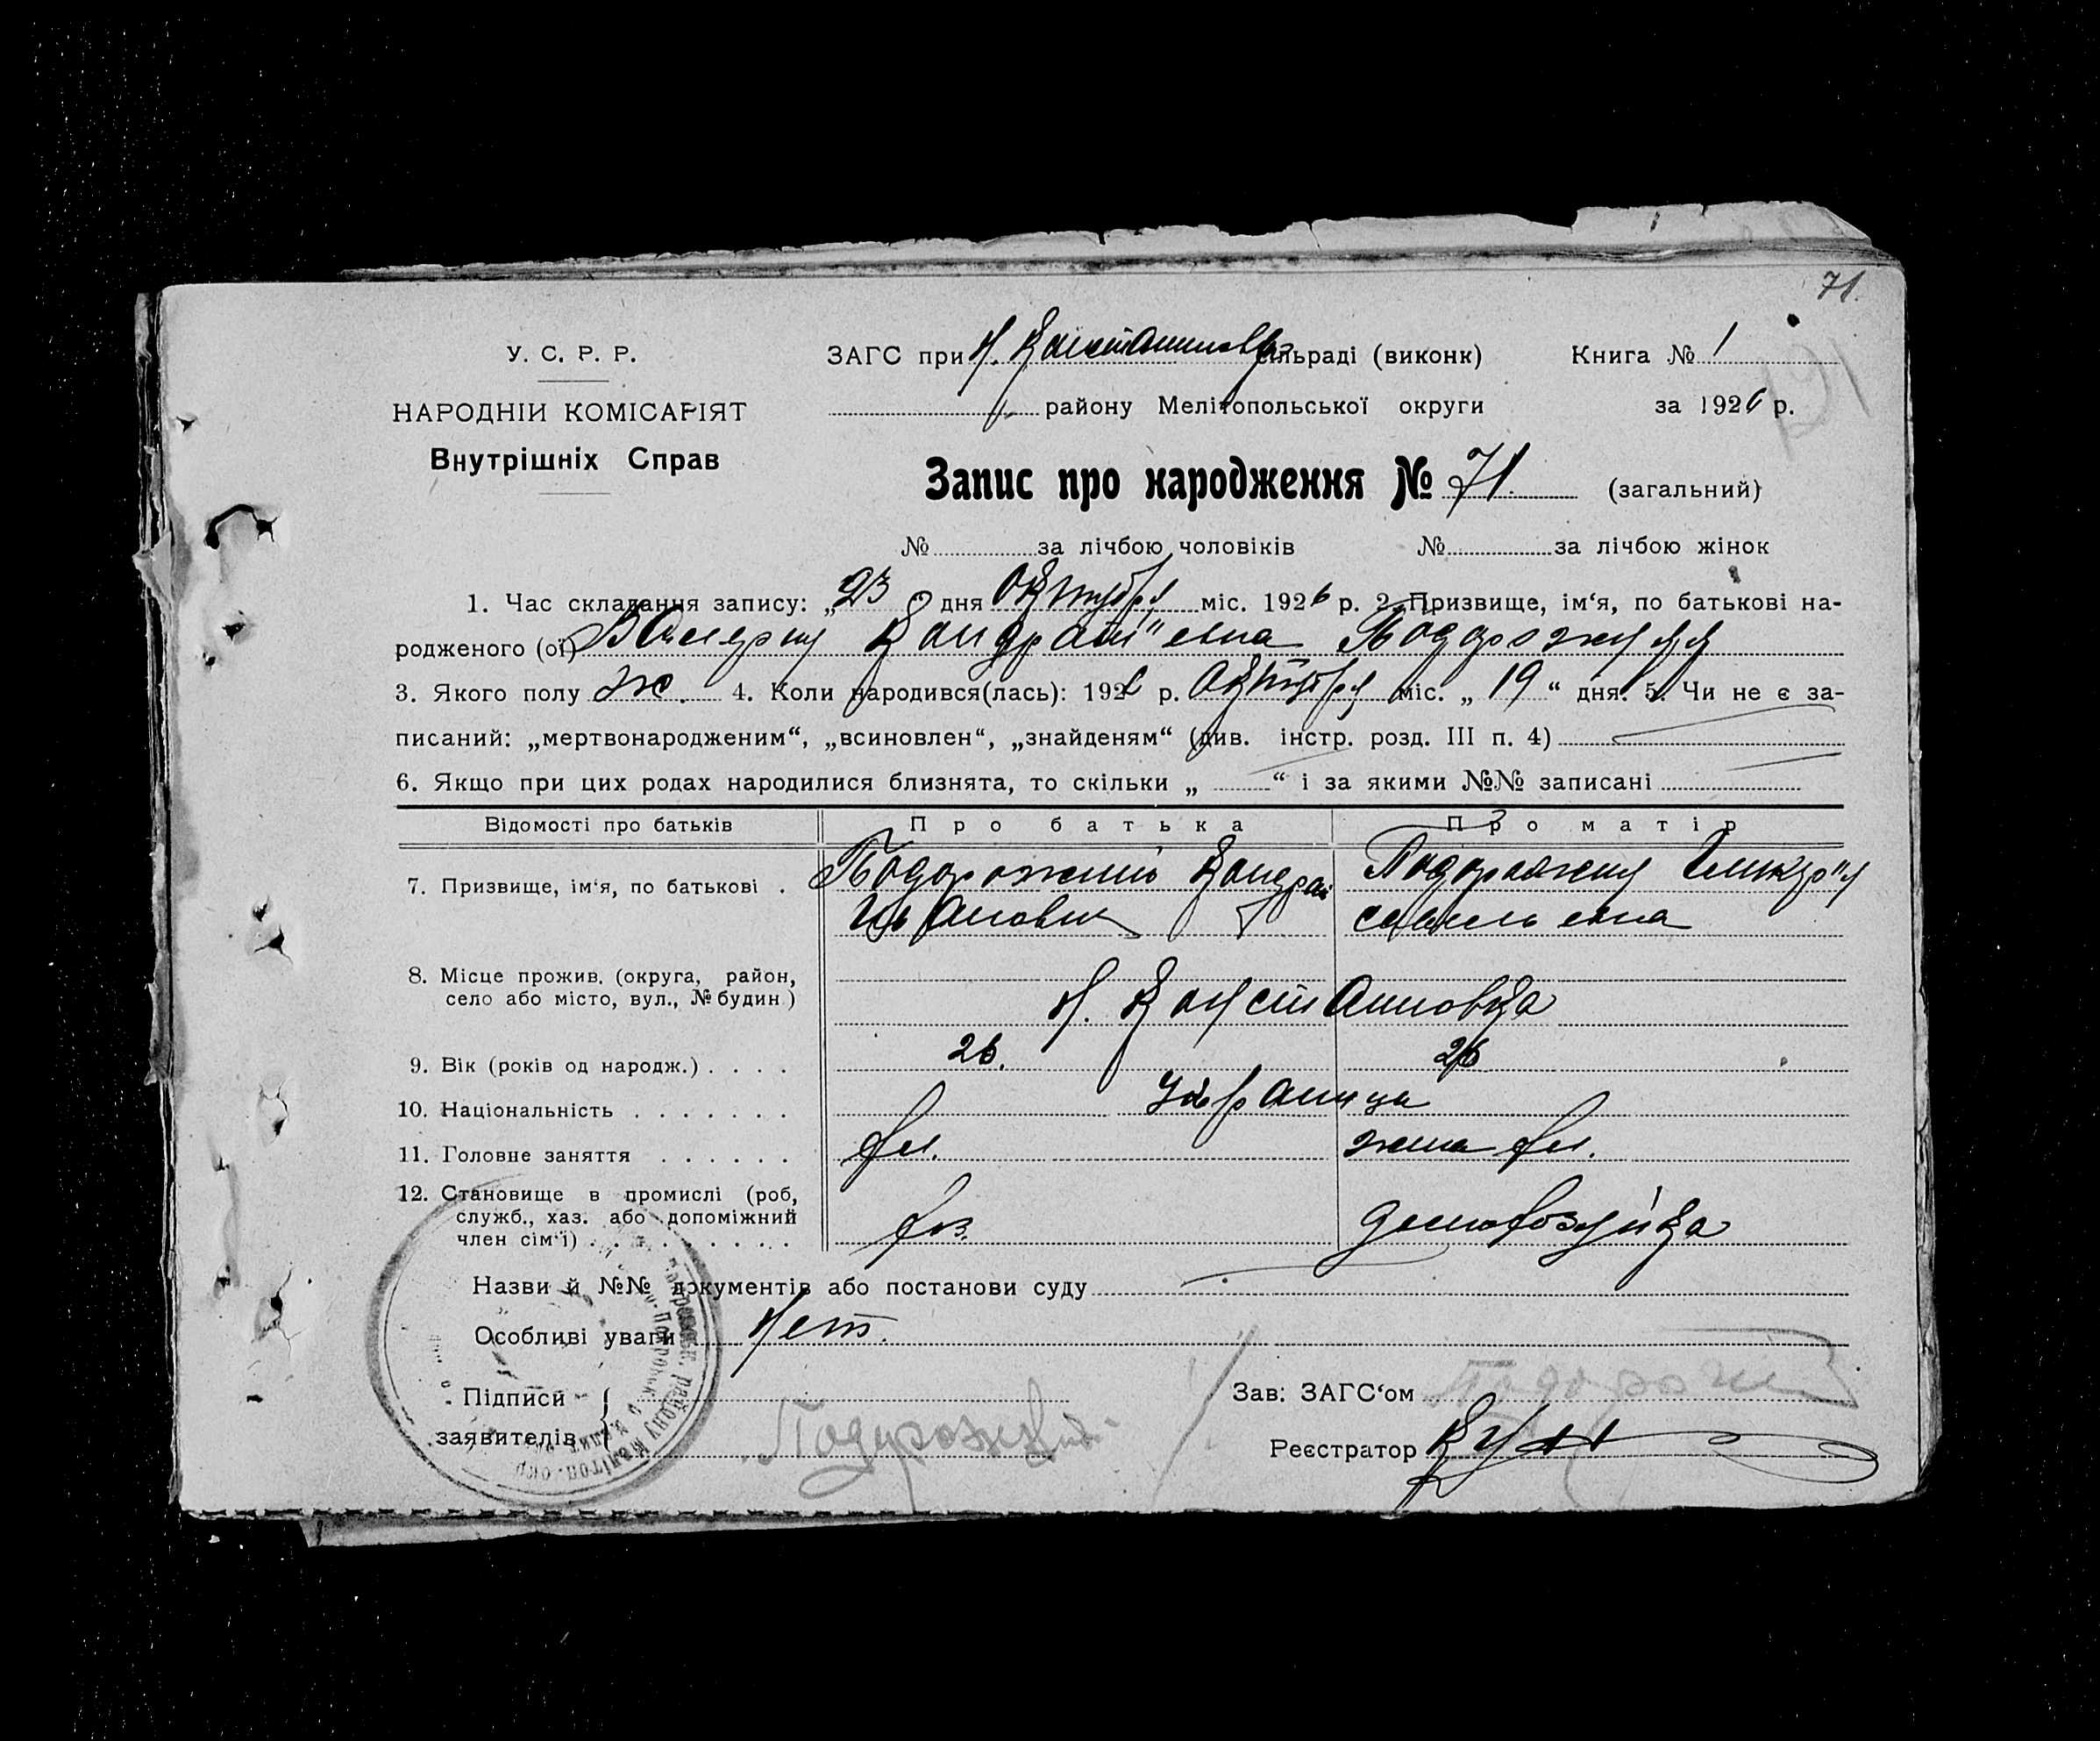 71.
У. С. Р. Р.
ЗАГС при Н. Константиновка сільраді (виконк)
Книга № 1
НАРОДНІЙ КОМІСАРІЯТ
району Мелітопольської округи
за 1926 р.
Внутрішніх Справ
Запис про народження № 71. (загальний)
№ за лічбою чоловіків № за лічбою жінок
1. Час складання запису: „23 дня Октября міс. 1926 р. 2. Призвище, ім‘я, по батькові на-
родженого (ої) Валерия Кондрат"евна Подорожняя
3. Якого полу ж. 4. Коли народився(лась): 1926 р. Октября міс. „ 19 “ дня. 5. Чи не є за-
писаний: „мертвонародженим“, „всиновлен“, „знайденям“ (див. інстр. розд. III п. 4)
6. Якщо при цих родах народилися близнята, то скільки „ “ і за якими №№ записані
Відомості про батьків Про батька Про матір
7. Призвище, ім‘я, по батькові . Подорожний Кондрат Подорожняя
Иванович
8. Місце прожив. (округа, район,
село або місто, вул., № будин)
Н. Константиновка
9. Вік (років од народж.) . . . . 26. 26
10. Національність . . . . . . . Украинцы
11. Головне заняття . . . . . . хл. жена хл.
12. Становище в промислі (роб,
служб., хаз. або допоміжний
член сім‘ї) . . . . . . . . . . хоз. домохозяйка
Назви й №№ документів або постанови суду
Особливі уваги Нет.
Підписи
заявителів
Подорожний
Зав: ЗАГС‘ом
Реєстратор